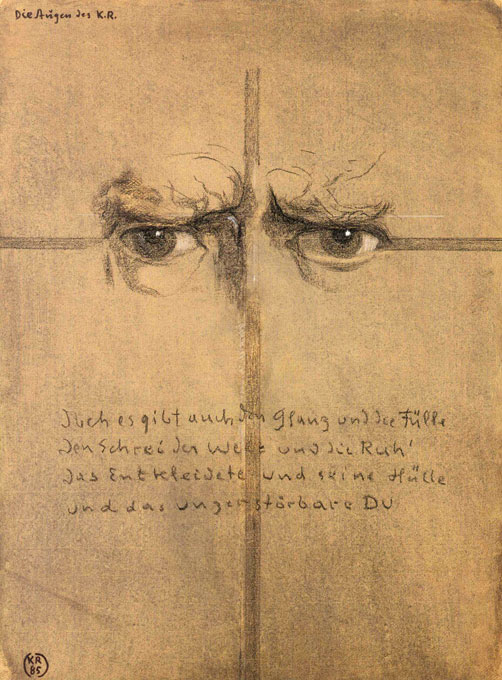 Die Augen des K.R.
Doch es gibt auch den Glanz und die Fülle
Den Schrei der Welt und die Ruh'
Das Entkleidete und seine Hülle
und das unzerstörbare Du
KR
85